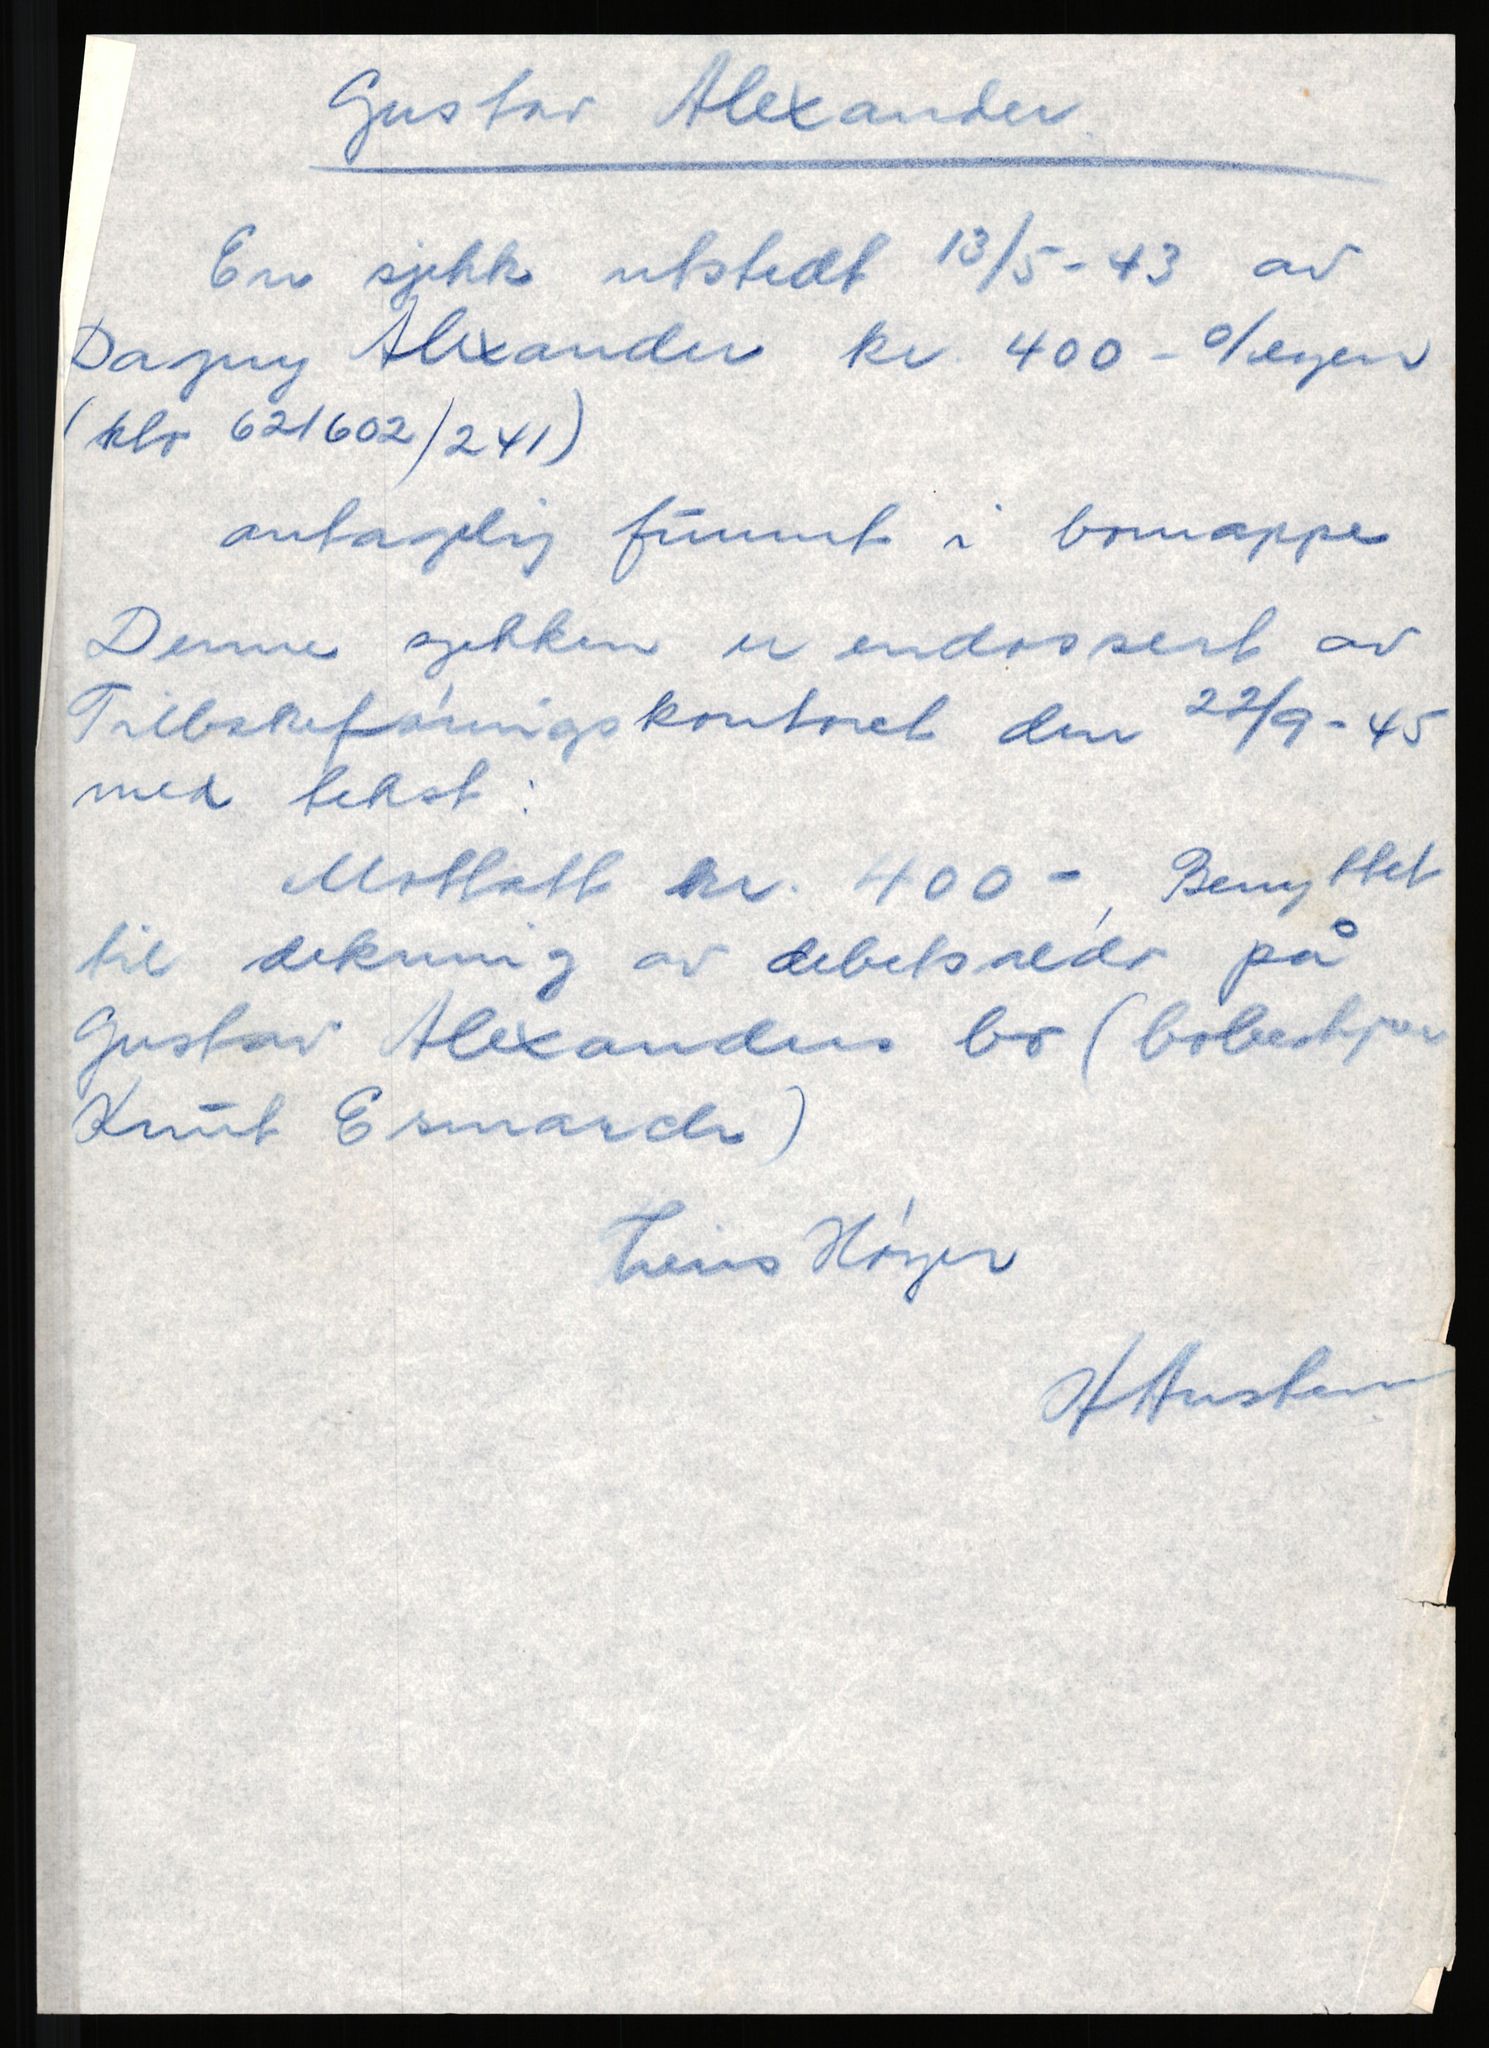 Gustav Alexander.
En sjekk utstedt 13/5-43 av
Dagny Alexander kr. 400 - o/egen
(klo 621602/241)
antagelig funnet i bomappe
Denne sjekken er endossert av
Tilbakeføringskontoret den 22/9-45
med tekst:
Mottatt kr. 400 -, Benyttet
til dekning av debetsaldo på
Gustav Alexanders bo (bobestyrer
Knut Esmarch)
Høyer